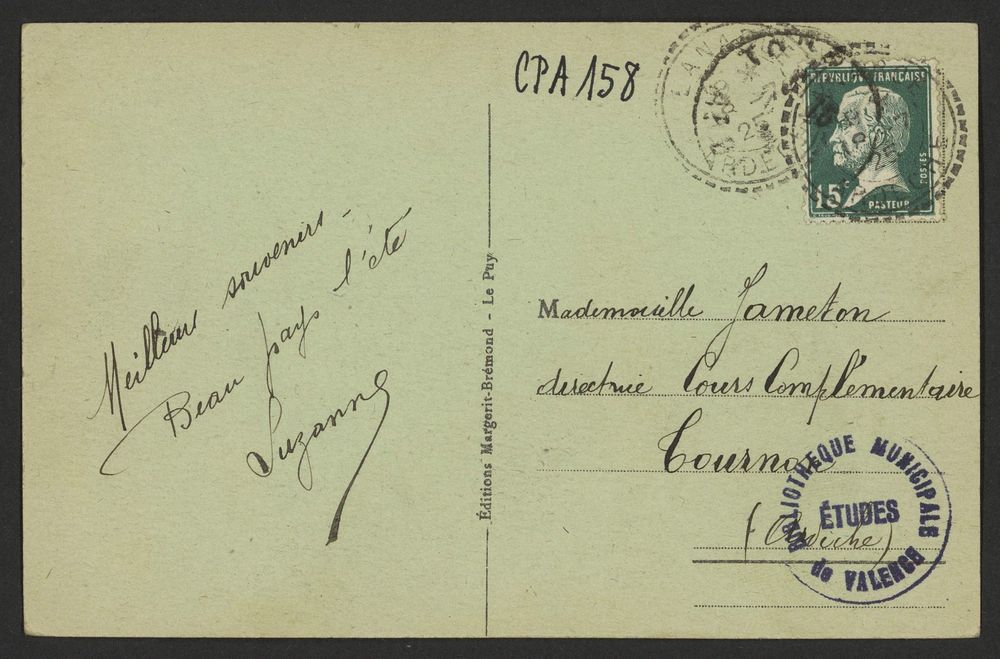 CPA 158
RÉPUBLIQUE FRANÇAISE
POSTES
15c
PASTEUR
Meilleurs souvenirs -
Beau pays l'été
Suzanne
Éditions Margerit-Brémond - Le Puy
Mademoiselle Jameton
directrice Cours Complémentaire
Tournon
(Ardèche)
BIBLIOTHEQUE MUNICIPALE
ÉTUDES
de VALENCE